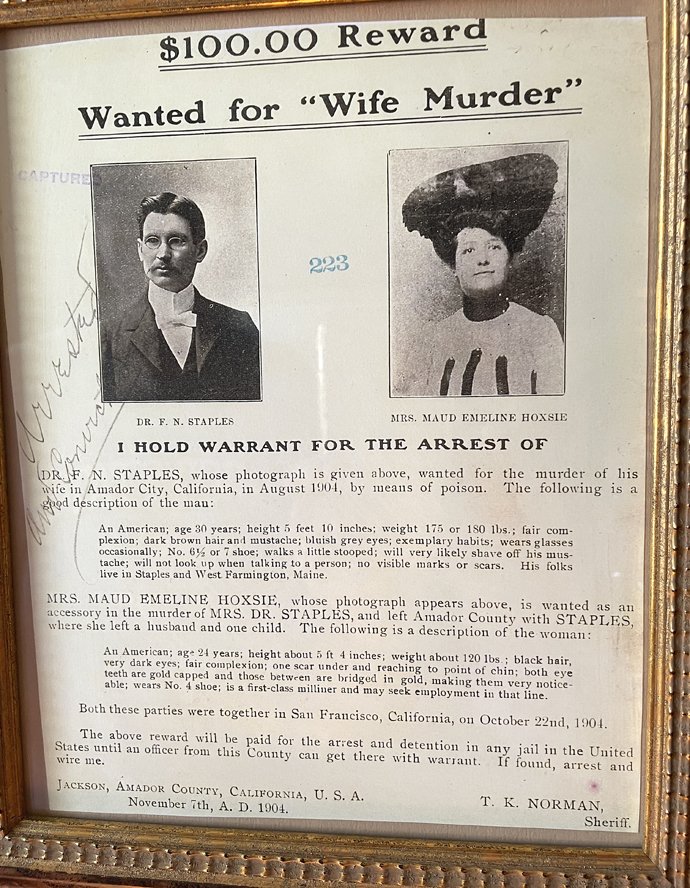 $100.00 Reward
Wanted for "Wife Murder"
CAPTURED
223
Arrested
and Convicted
DR. F. N. STAPLES
MRS. MAUD EMELINE HOXSIE
I HOLD WARRANT FOR THE ARREST OF
DR. F. N. STAPLES, whose photograph is given above, wanted for the murder of his
wife in Amador City, California, in August 1904, by means of poison. The following is a
good description of the man:
An American; age 30 years; height 5 feet 10 inches; weight 175 or 180 lbs.; fair com-
plexion; dark brown hair and mustache; bluish grey eyes; exemplary habits; wears glasses
occasionally; No. 6½ or 7 shoe; walks a little stooped; will very likely shave off his mus-
tache; will not look up when talking to a person; no visible marks or scars. His folks
live in Staples and West Farmington, Maine.
MRS. MAUD EMELINE HOXSIE, whose photograph appears above, is wanted as an
accessory in the murder of MRS. DR. STAPLES, and left Amador County with STAPLES,
where she left a husband and one child. The following is a description of the woman:
An American; age 24 years; height about 5 ft 4 inches; weight about 120 lbs.; black hair,
very dark eyes; fair complexion; one scar under and reaching to point of chin; both eye
teeth are gold capped and those between are bridged in gold, making them very notice-
able; wears No. 4 shoe; is a first-class milliner and may seek employment in that line.
Both these parties were together in San Francisco, California, on October 22nd, 1904.
The above reward will be paid for the arrest and detention in any jail in the United
States until an officer from this County can get there with warrant. If found, arrest and
wire me.
JACKSON, AMADOR COUNTY, CALIFORNIA, U. S. A.
November 7th, A. D. 1904.
T. K. NORMAN,
Sheriff.